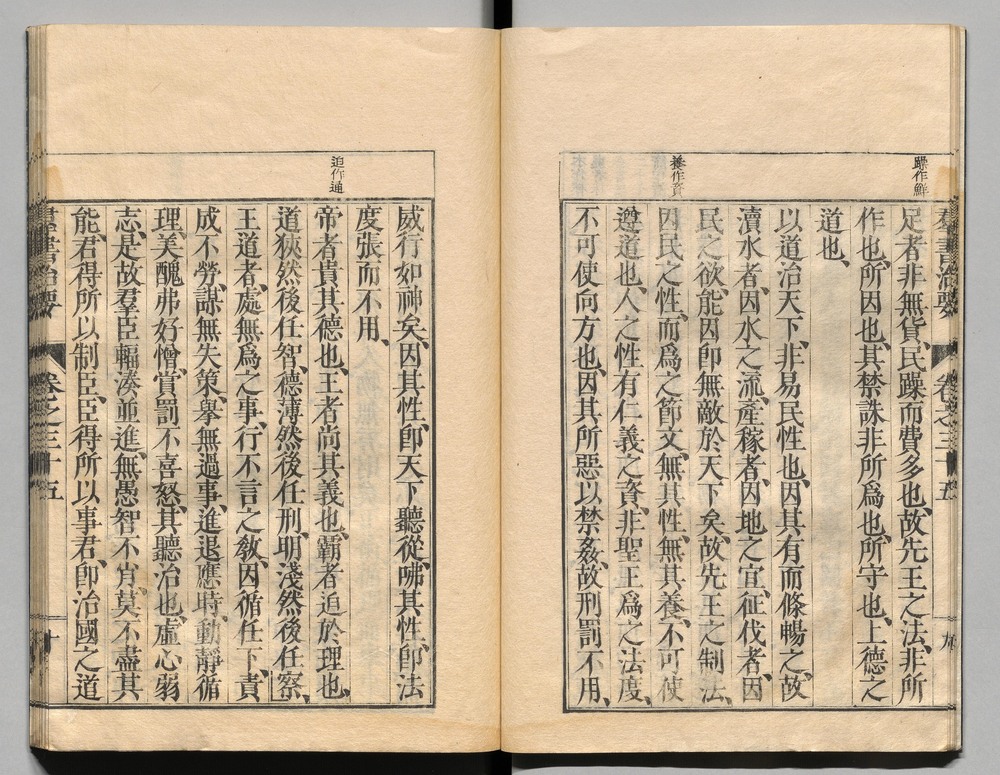 躁作鮮
養作資
足者、非無貨、民躁而費多也、故先王之法、非所
作也、所因也、其禁誅非所爲也、所守也、上德之
道也、
以道治天下、非易民性也、因其有而條暢之、故
瀆水者、因水之流、產稼者、因地之宜、征伐者、因
民之欲、能因卽無敵於天下矣、故先王之制法、
因民之性、而爲之節文、無其性、無其養、不可使
遵道也、人之性有仁義之資、非聖王爲之法度、
不可使向方也、因其所惡以禁姦、故刑罰不用、
群書治要 卷之三十五 九
追作通
威行如神矣、因其性、卽天下聽從、咈其性、卽法
度張而不用、
帝者貴其德也、王者尚其義也、霸者追於理也、
道狹然後任智、德薄然後任刑、明淺然後任察、
王道者、處無爲之事、行不言之敎、因循任下、責
成不勞、謀無失策、擧無過事、進退應時、動靜循
理、美醜弗好憎、賞罰不喜怒、其聽治也、虛心弱
志、是故羣臣輻湊並進、無愚智不肖、莫不盡其
能、君得所以制臣、臣得所以事君、卽治國之道
群書治要 卷之三十五 十